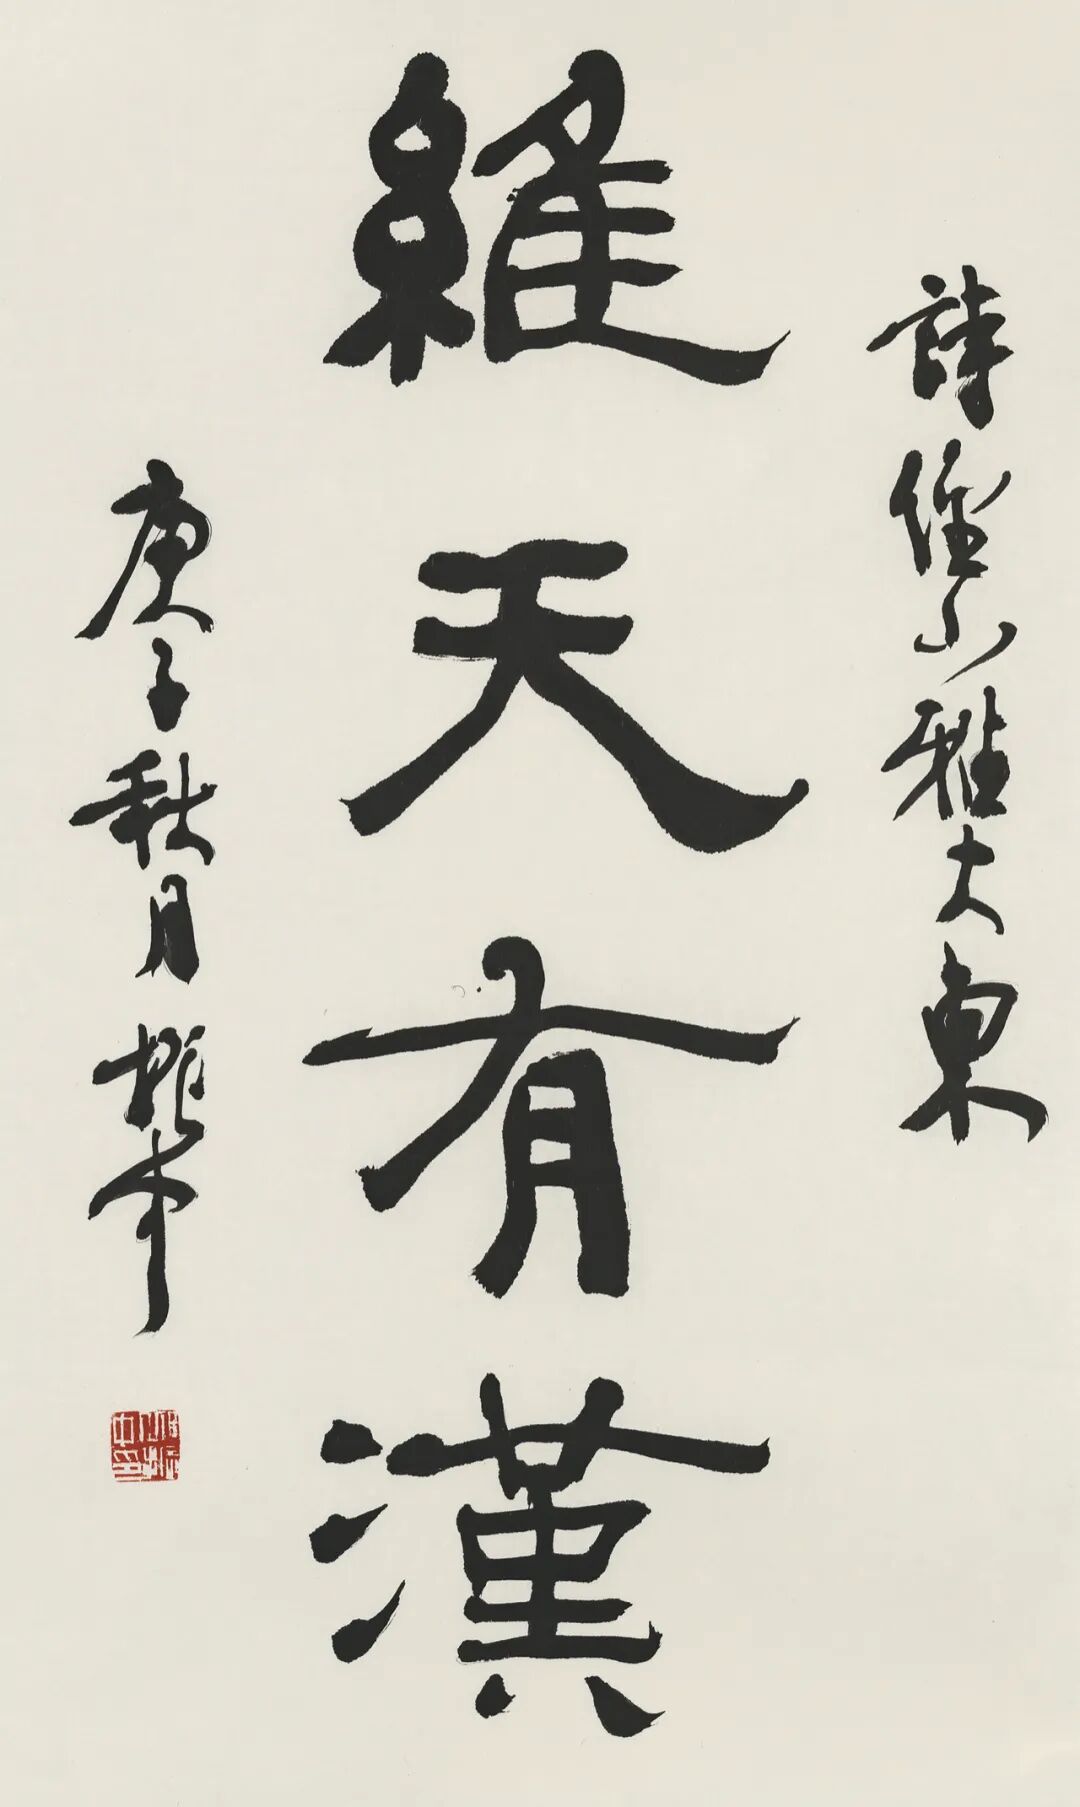 詩經小雅大東
維天有漢
庚子秋月振中